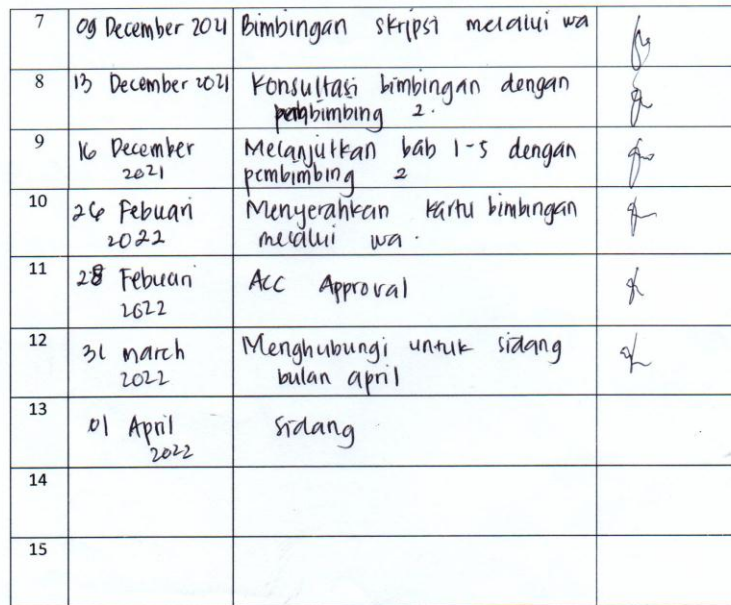 7 09 December 2021 Bimbingan skripsi melalui wa
8 13 December 2021 Konsultasi bimbingan dengan
pembimbing 2.
9 16 December Melanjutkan bab 1-5 dengan
2021 pembimbing 2
10 26 Febuari Menyerahkan kartu bimbingan
2022 melalui wa.
11 28 Febuari ACC Approval
2022
12 31 march Menghubungi untuk sidang
2022 bulan april
13
01 April sidang
2022
14
15